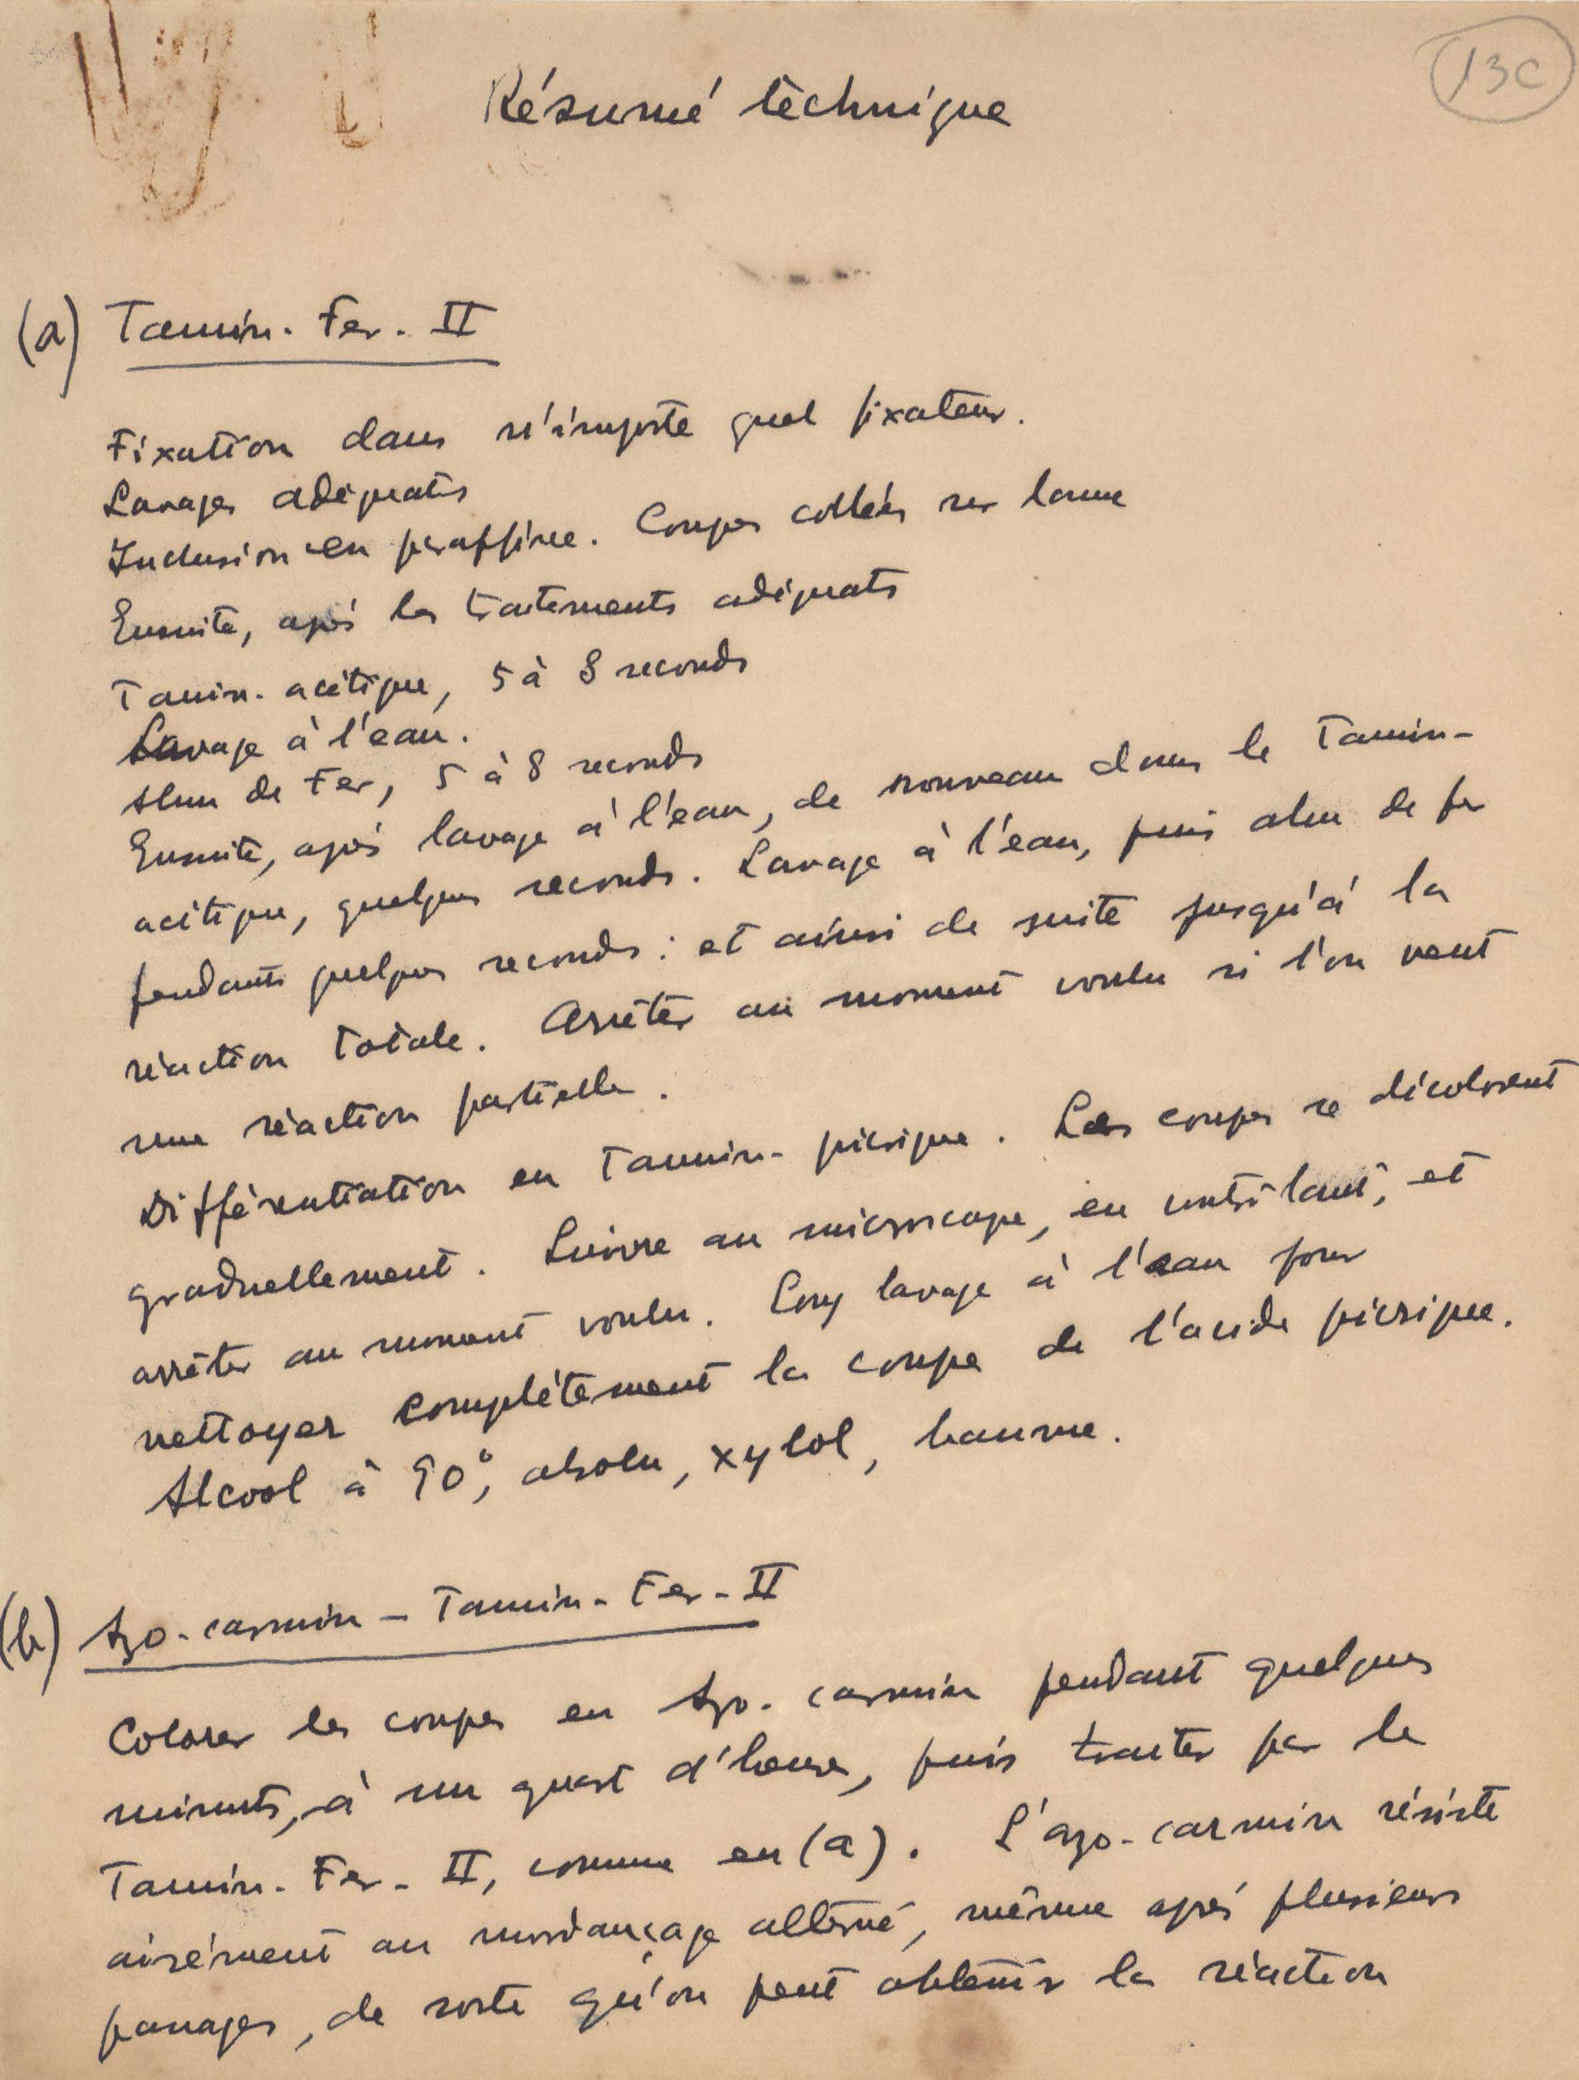 13C
Résumé technique
(a) Tannin-Fer-II
Fixation dans n'importe quel fixateur.
Lavages adéquats
Inclusion en paraffine. Coupes collées sur lame
Ensuite, après les traitements adéquats
Tanin-acétique, 5 à 8 seconds
Lavage à l'eau.
Alun de Fer, 5 à 8 seconds
Ensuite, après lavage à l'eau, de nouveau dans le Tannin-
acétique, quelques seconds. Lavage à l'eau, puis alun de fer
pendant quelques seconds: et ainsi de suite jusqu'à la
réaction totale. Arrêter au moment voulu si l'on veut
une réaction partielle.
Différentiation en Tannin-picrique. Les coupes se décolorent
graduellement. Suivre au microscope, en contrôlant, et
arrêter au moment voulu. Long lavage à l'eau pour
nettoyer complètement la coupe de l'acide picrique.
Alcool à 90°, absolu, xylol, baume.
(b) Azo-carmin-Tannin-Fer-II
Colorer les coupes en Azo-carmin pendant quelques
minuts, à un quart d'heure, puis traiter par le
Tannin-Fer-II, comme en (a). L'azo-carmin résiste
aisément au mordançage alterné, même après plusieurs
passages, de sorte qu'on peut obtenir la réaction